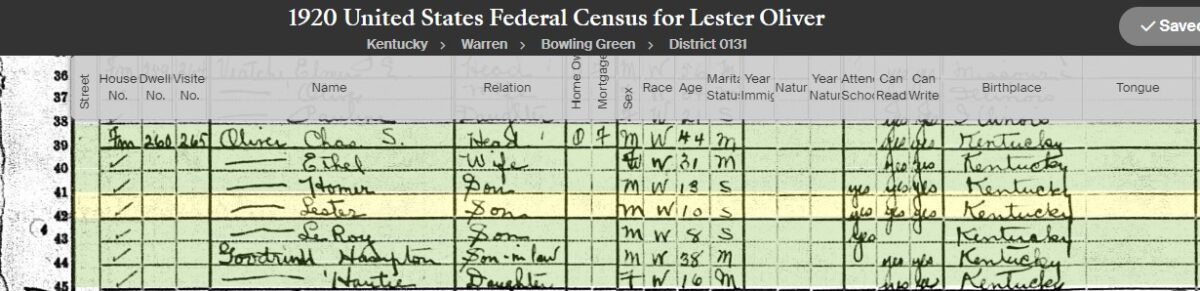 1920 United States Federal Census for Lester Oliver
Kentucky > Warren > Bowling Green > District 0131
Saved
Street House No. Dwell No. Visite No. Name Relation Home Ow Mortgage Sex Race Age Marita Status Year Immig Natur Year Natur Atten Schoo Can Read Can Write Birthplace Tongue
36 Head M W Missouri
37 Illinois
38 yes yes Illinois
39 Fm 260 265 Oliver Chas. S. Head O F M W 44 M yes yes Kentucky
40 Ethel Wife W 31 M yes yes Kentucky
41 Homer Son M W 13 S yes yes yes Kentucky
42 Lester Son M W 10 S yes yes yes Kentucky
43 Le Roy Son M W 8 S yes Kentucky
44 Hampton Son-in law M W 38 M yes yes Kentucky
45 Daughter F W 16 M yes Kentucky